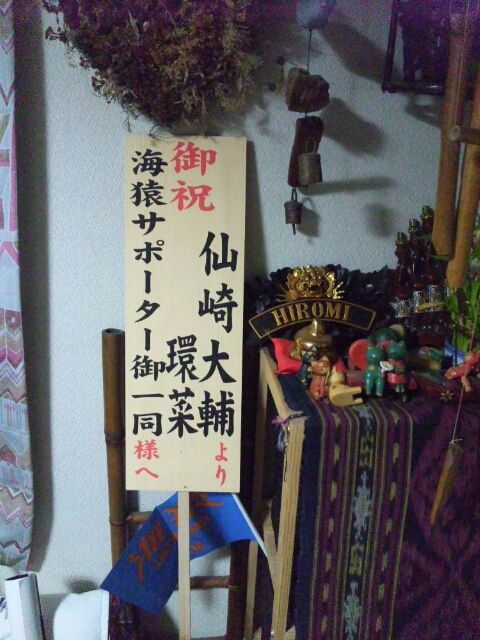 御祝
仙崎大輔
環菜より
海猿サポーター御一同様へ
HIROMI